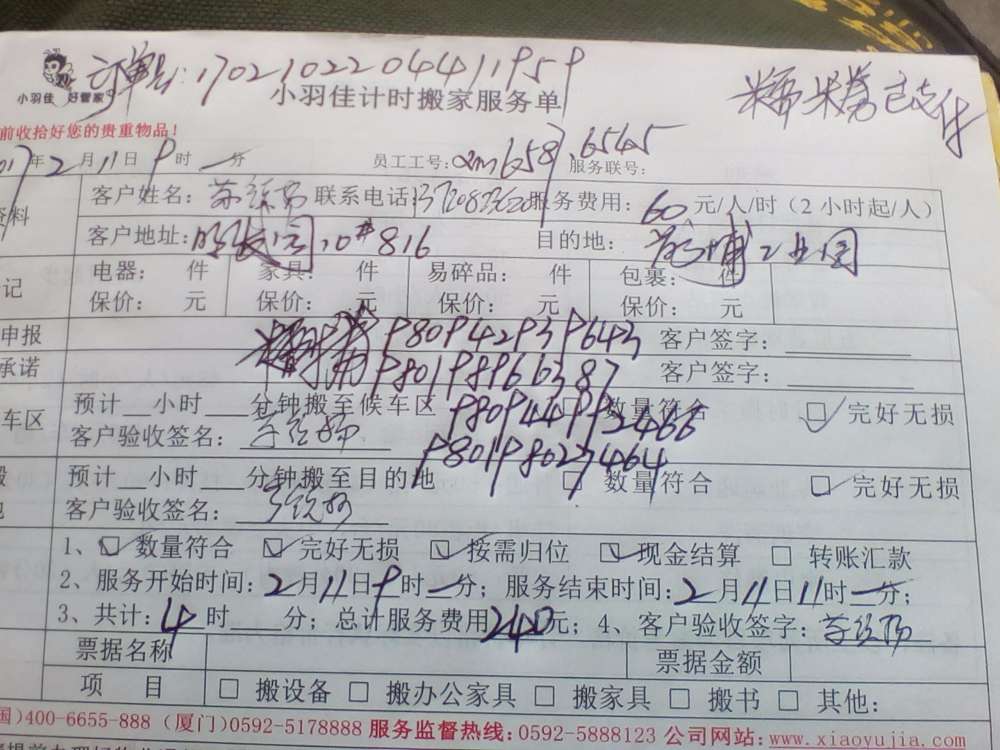 订单号:1702102204411959
糯米券已支付
小羽佳 好管家
小羽佳计时搬家服务单
前收拾好您的贵重物品!
年2月11日9时一分 员工工号: 6587.6545 服务联号:
资料 客户姓名: 联系电话: 服务费用:60元/人/时(2小时起/人)
客户地址: 10#816 目的地: 工业园
记 电器: 件 家具: 件 易碎品: 件 包裹: 件
保价: 元 保价: 元 保价: 元 保价: 元
申报 糯米券 P80942939643 客户签字:
承诺 糯米券 P80198966387 客户签字:
车区 预计 小时 分钟搬至候车区 数量符合 完好无损
P80944992466
客户验收签名:
P80198027464
预计 小时 分钟搬至目的地 数量符合 完好无损
客户验收签名:
1、 数量符合 完好无损 按需归位 现金结算 转账汇款
2、服务开始时间:2月11日9时一分; 服务结束时间:2月11日11时一分;
3、共计:4时 分; 总计服务费用240元; 4、客户验收签字:
票据名称 票据金额
项 目 搬设备 搬办公家具 搬家具 搬书 其他:
国)400-6655-888 (厦门)0592-5178888 服务监督热线: 0592-5888123 公司网站:www.xiaoyujia.com